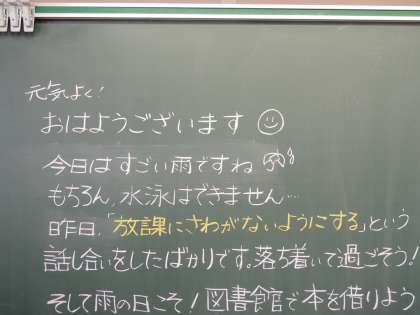 元気よく!
おはようございます
今日はすごい雨ですね
もちろん、水泳はできません…
昨日、「放課にさわがないようにする」という
話し合いをしたばかりです。落ち着いて過ごそう!
そして雨の日こそ!図書館で本を借りよう